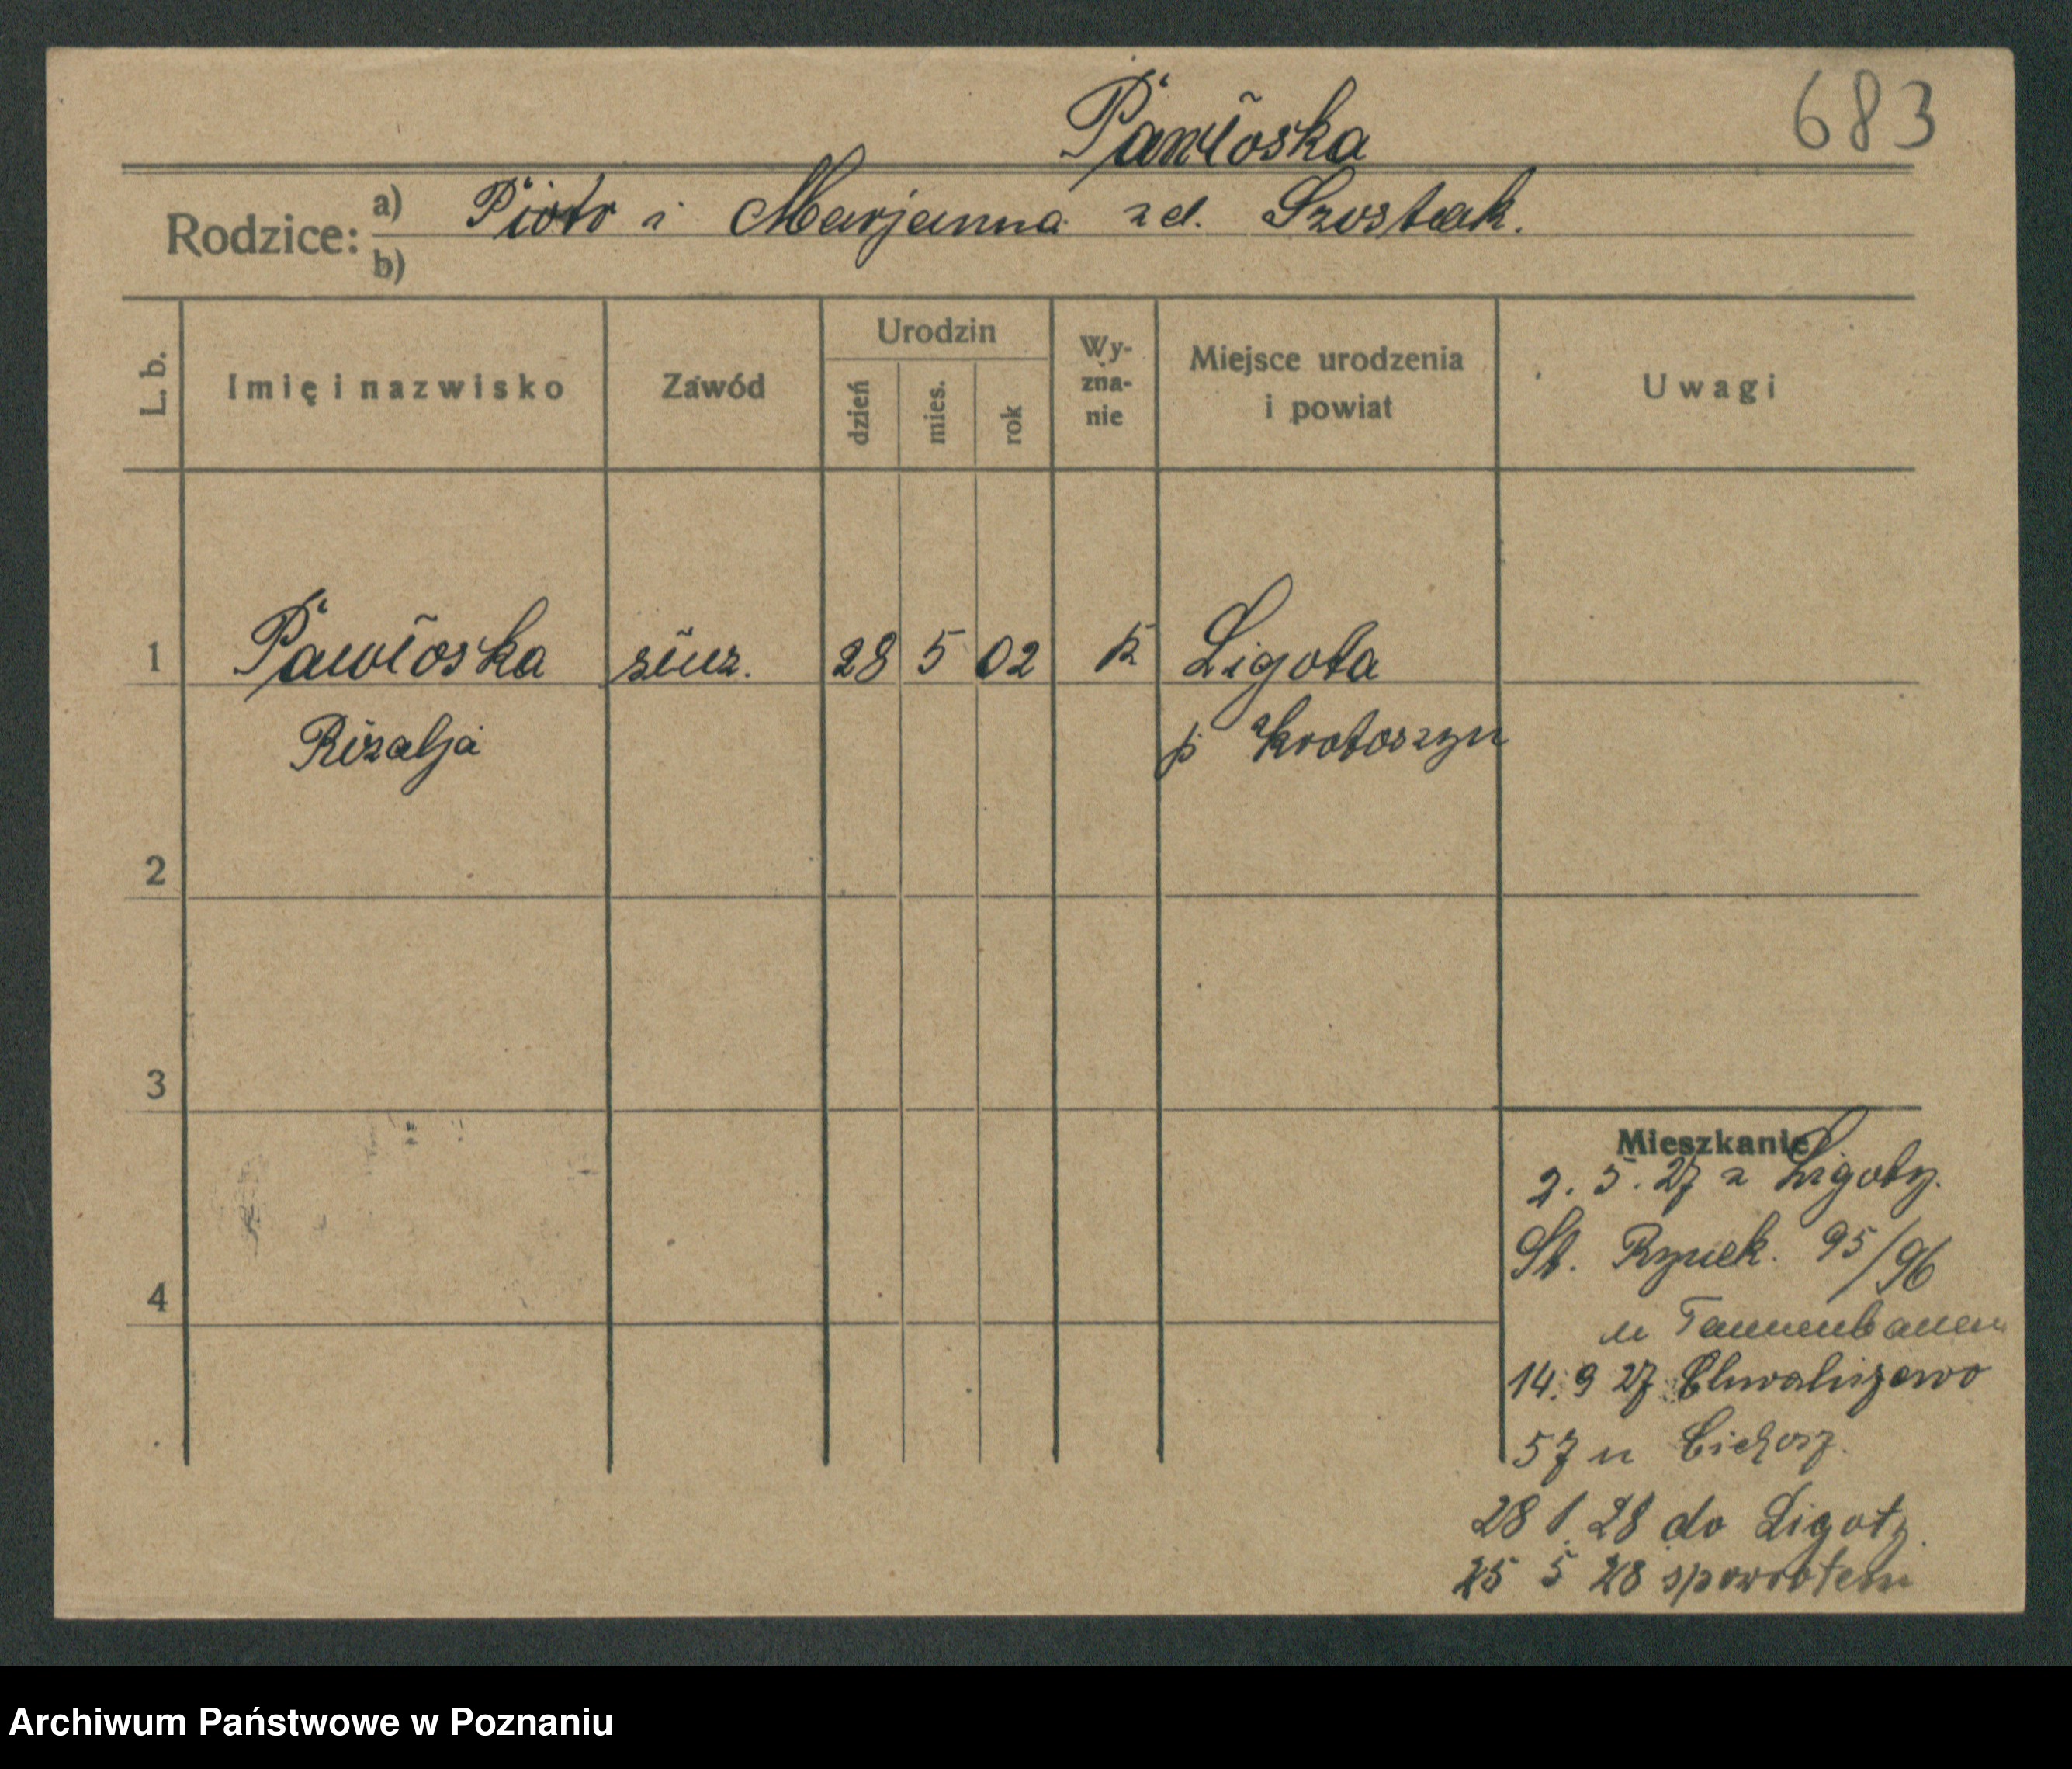 683
Pawłoska
Rodzice: a) Piotr i Marjanna zd. Szostak.
b)
L. b. Imię i nazwisko Zawód Urodzin dzień mies. rok Wy-zna-nie Miejsce urodzenia i powiat Uwagi
1 Pawłoska służ. 28 5 02 k Ligota
Rozalja p Krotoszyn
2
3
Mieszkanie
2. 5. 27 z Ligoty.
St. Rynek. 95/96
u Tannenbaum
4
14. 9 27 Chwaliszewo
57 u Cichosz.
28 1. 28 do Ligoty.
25 5 28 spowrotem
Archiwum Państwowe w Poznaniu